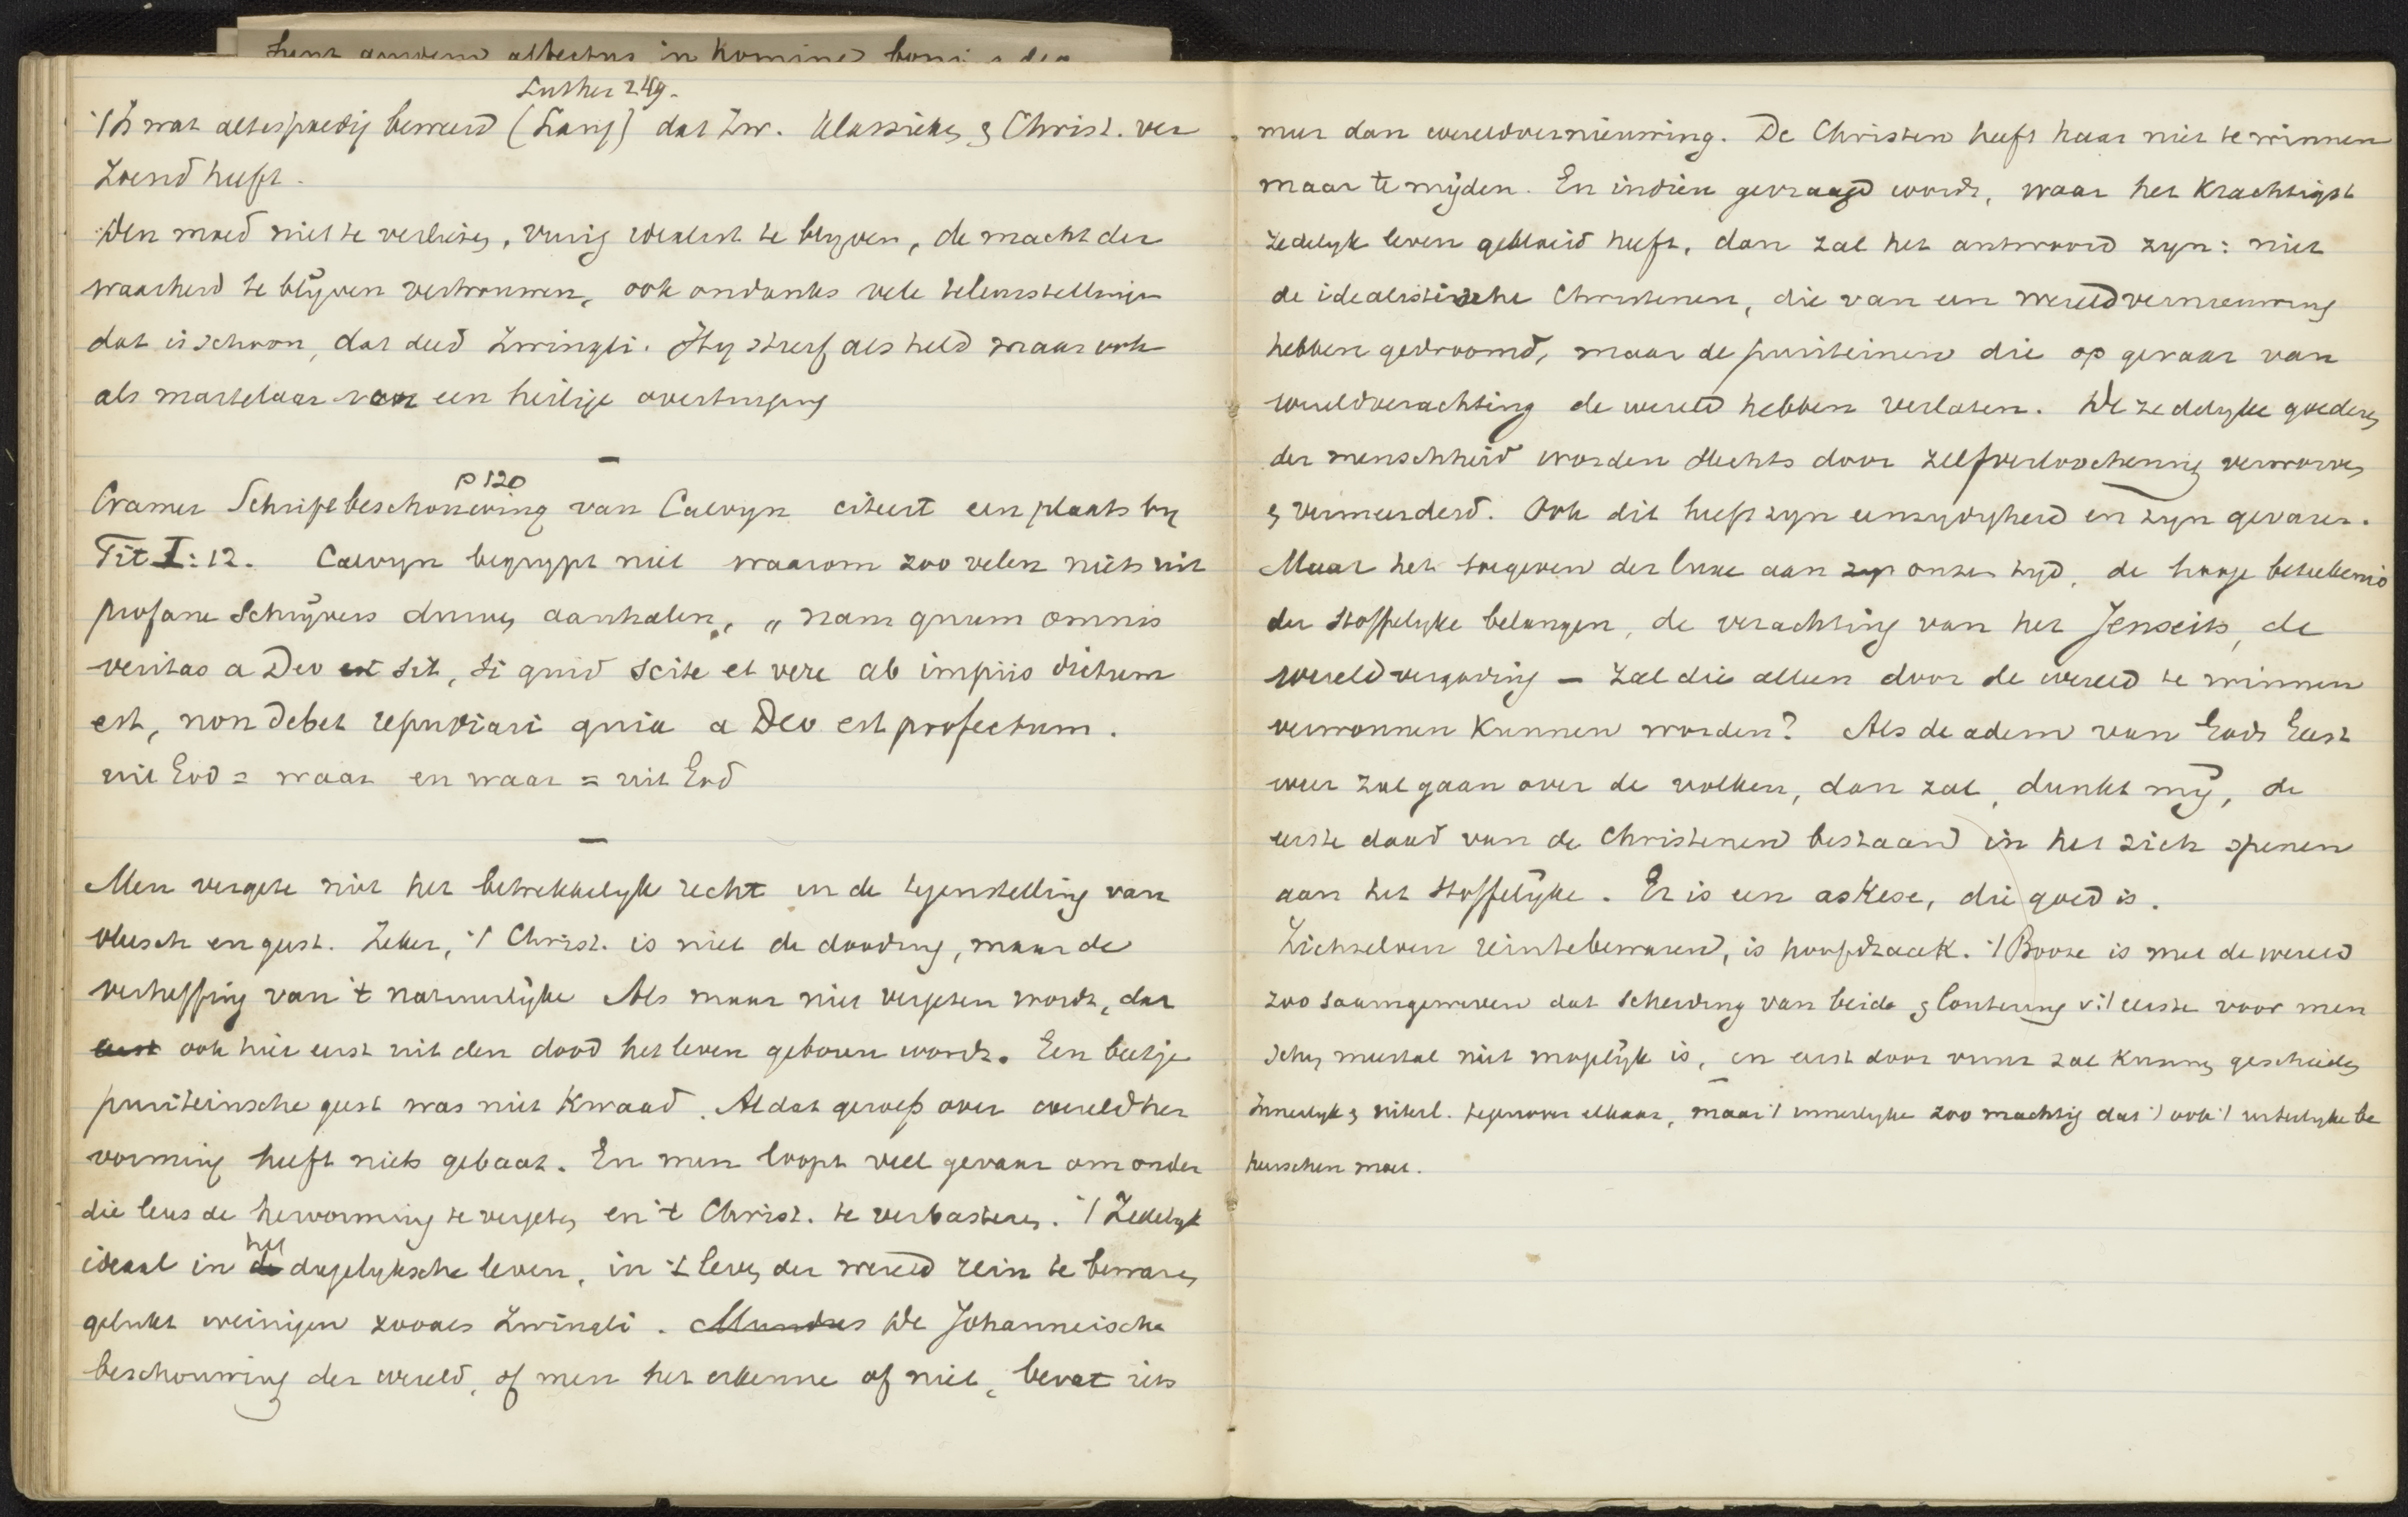 Luther 249.
't Is wat al te spoedig beweerd (Lang) dat Zw. klassieke, & Christ. ver
zoend heeft.
Den moed niet te verliezen, vurig idealist te blyven, de macht der
waarheid te blijven vertrouwen, ook ondanks vele teleurstellingen
dat is schoon, dat deed Zwingli. Hy stierf als held maar ook
als martelaar van een heilige overtuiging
—
p 120
Cramer Schriftbeschouwing van Calvyn citeert een plaats by
Tit I:12. Calvyn begrypt niet waarom zoo velen niets uit
profane schrijvers durven aanhalen, „nam quum omnis
veritas a Deo est sit, si quid scite et vere ab impiis dictum
est, non debet repudiari quia a Deo est profectum.
uit God = waar en waar = uit God
—
Men vergete niet het betrekkelyk recht in de tegenstelling van
vleesch en geest. Zeker, 't Christ. is niet de dooding, maar de
verheffing van 't natuurlijke Als maar niet vergeten wordt, dat
eerst ook hier eerst uit den dood het leven geboren wordt. Een beetje
puriteinsche geest was niet kwaad. Al dat geroep over wereldher
vorming heeft niets gebaat. En men loopt veel gevaar om onder
die leus de hervorming te vergeten en 't Christ. te verbasteren. 't Zedelyk
ideaal in de het dagelyksche leven, in 't leven der wereld rein te bewaren
gelukt weinigen zooals Zwingli. Mundus De Johanneische
beschouwing der wereld, of men het erkenne of niet, bevat iets
meer dan wereldvernieuwing. De Christen heeft haar niet te winnen
maar te mijden. En indien gevraagd wordt, waar het krachtigst
zedelyk leven gebloeid heeft, dan zal het antwoord zyn: niet
de idealistische Christenen, die van een wereldvernieuwing
hebben gedroomd, maar de puriteinen die op gevaar van
wereldverachting de wereld hebben verlaten. De zedelyke goederen
der menschheid worden slechts door zelfverloochening verworven
& vermeerderd. Ook dit heeft zyn eenzydigheid en zyn gevaren.
Maar het toegeven der luxe aan zyn onzen tyd, de hooge beteekenis
der stoffelyke belangen, de verachting van het Jenseits, de
wereldvergoding — zal die alleen door de wereld te winnen
verwonnen kunnen worden? Als de adem van Gods Geest
weer zal gaan over de volken, dan zal, dunkt mij, de
eerste daad van de Christenen bestaan in het zich spenen
aan het stoffelijke. Er is een askese, die goed is.
Zichzelven rein te bewaren, is hoofdzaak. 't Booze is met de wereld
zoo saamgeweven dat scheiding van beide & loutering v. 't eerste voor men
schen meestal niet mogelijk is, en eerst door vuur zal kunnen geschieden
Innerlyk & uiterl. tegenover elkaar, maar 't innerlyke zoo machtig dat 't ook 't uiterlyke be
heerschen moet.